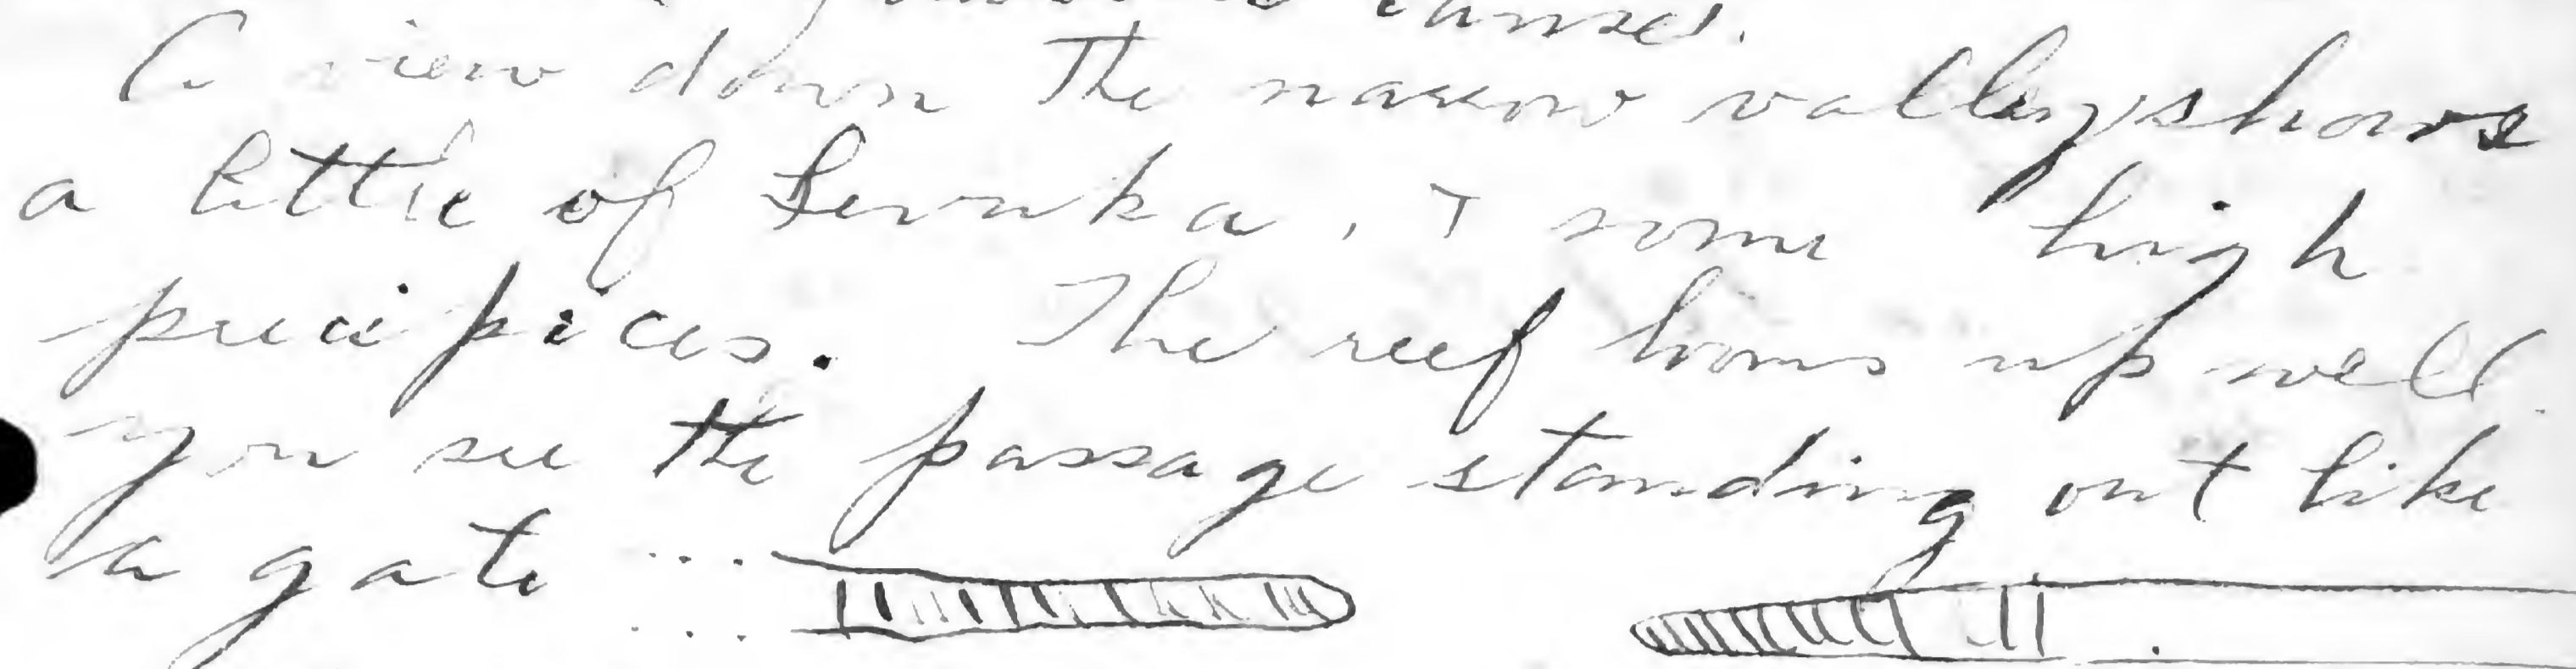 A view down the narrow valley shows
a little of Levuka, & some high
precipices. The reef looms up well
you see the passage standing out like
a gate